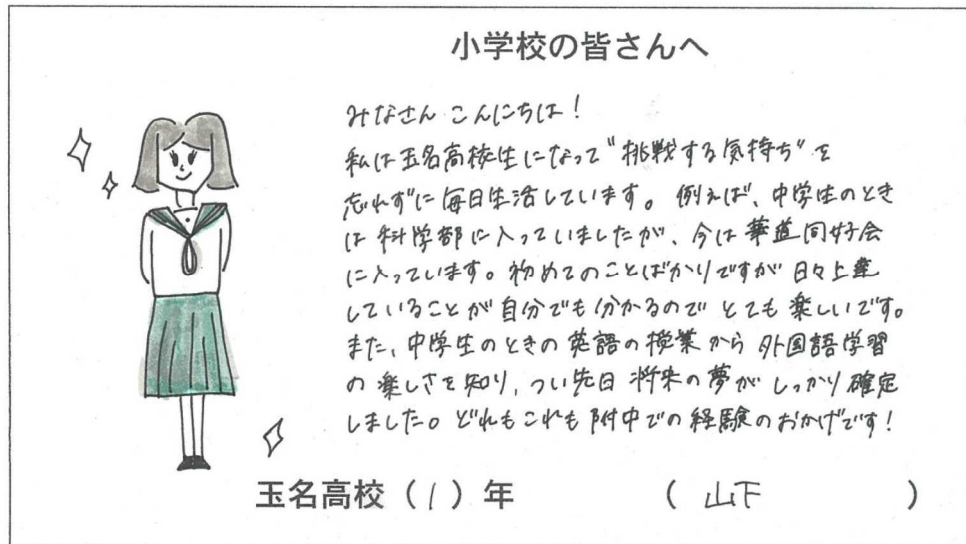 小学校の皆さんへ
みなさん こんにちは!
私は玉名高校生になって"挑戦する気持ち"を
忘れずに毎日生活しています。例えば、中学生のとき
は科学部に入っていましたが、今は華道同好会
に入っています。初めてのことばかりですが日々上達
していることが自分でも分かるのでとても楽しいです。
また、中学生のときの英語の授業から外国語学習
の楽しさを知り、つい先日将来の夢がしっかり確定
しました。どれもこれも附中での経験のおかげです!
玉名高校(1)年 (山下)